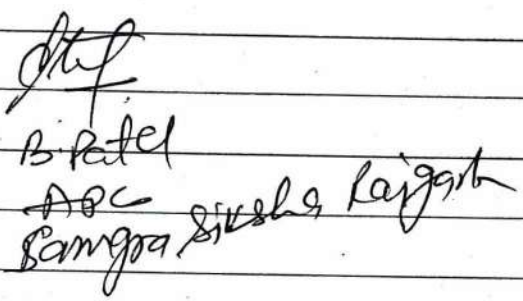 B. Patel
APC
Samgra Siksha Rajgarh